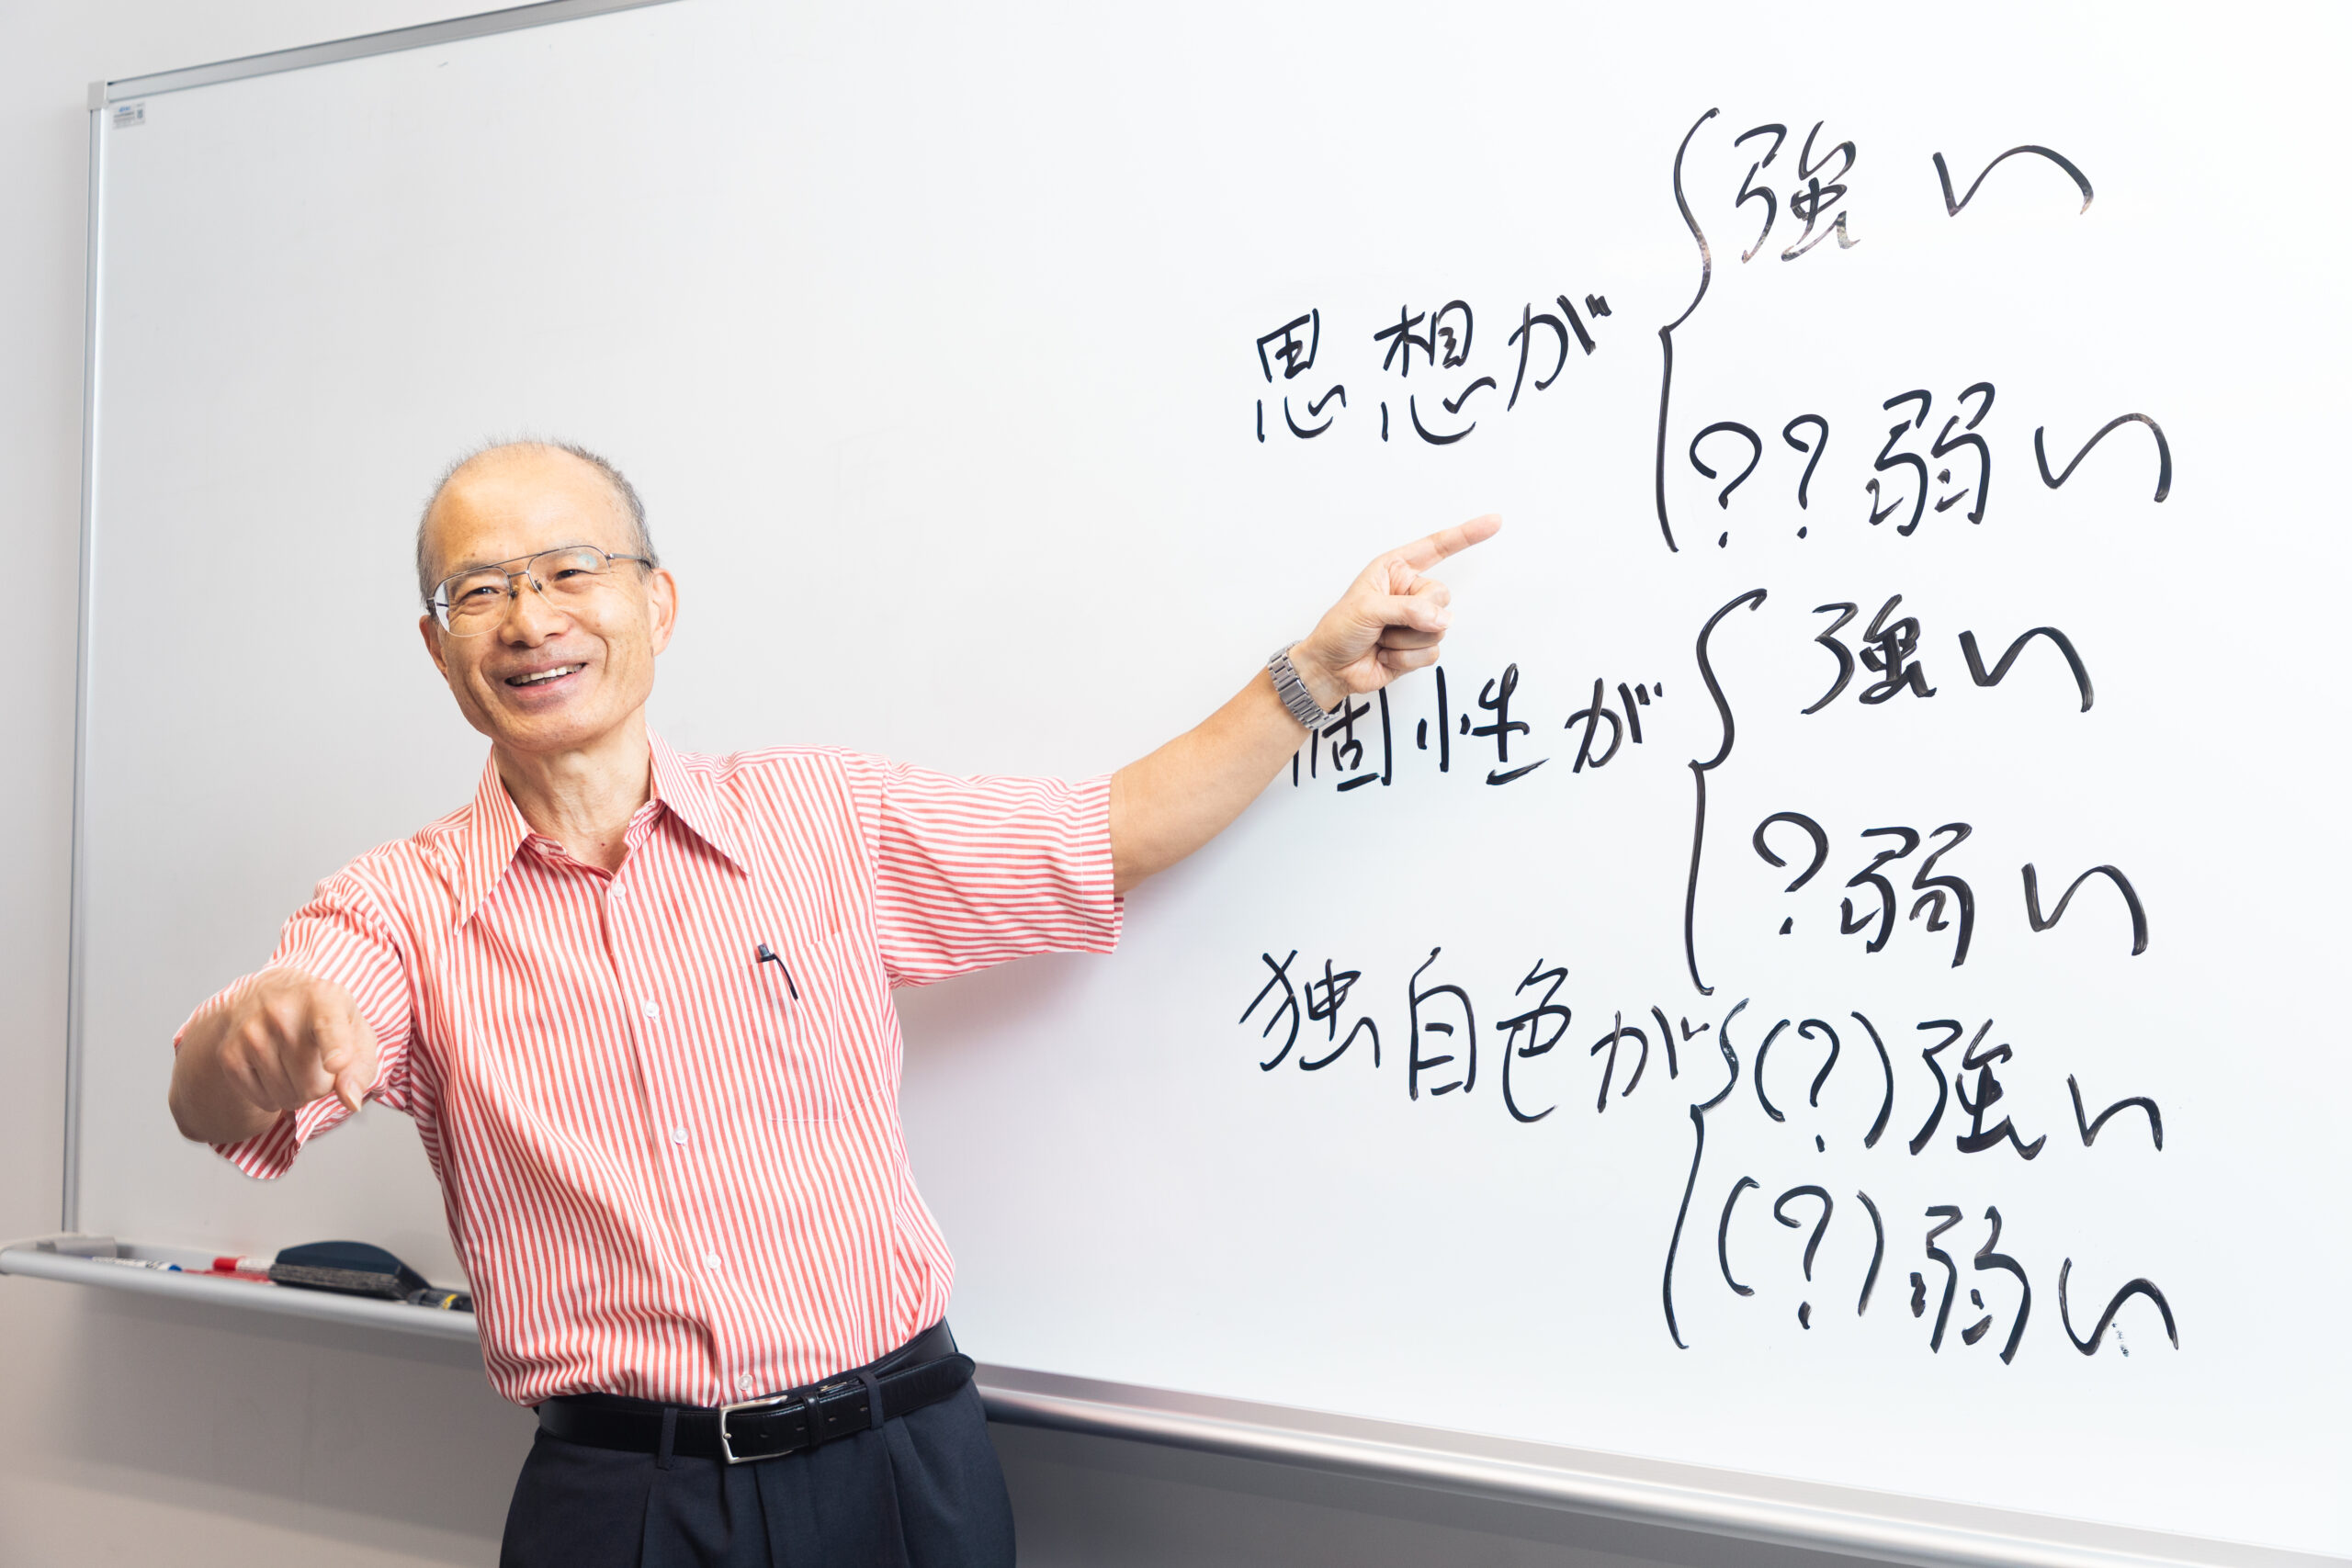 思想が{強い
??弱い
個性が{強い
?弱い
独自色が{(?)強い
(?)弱い